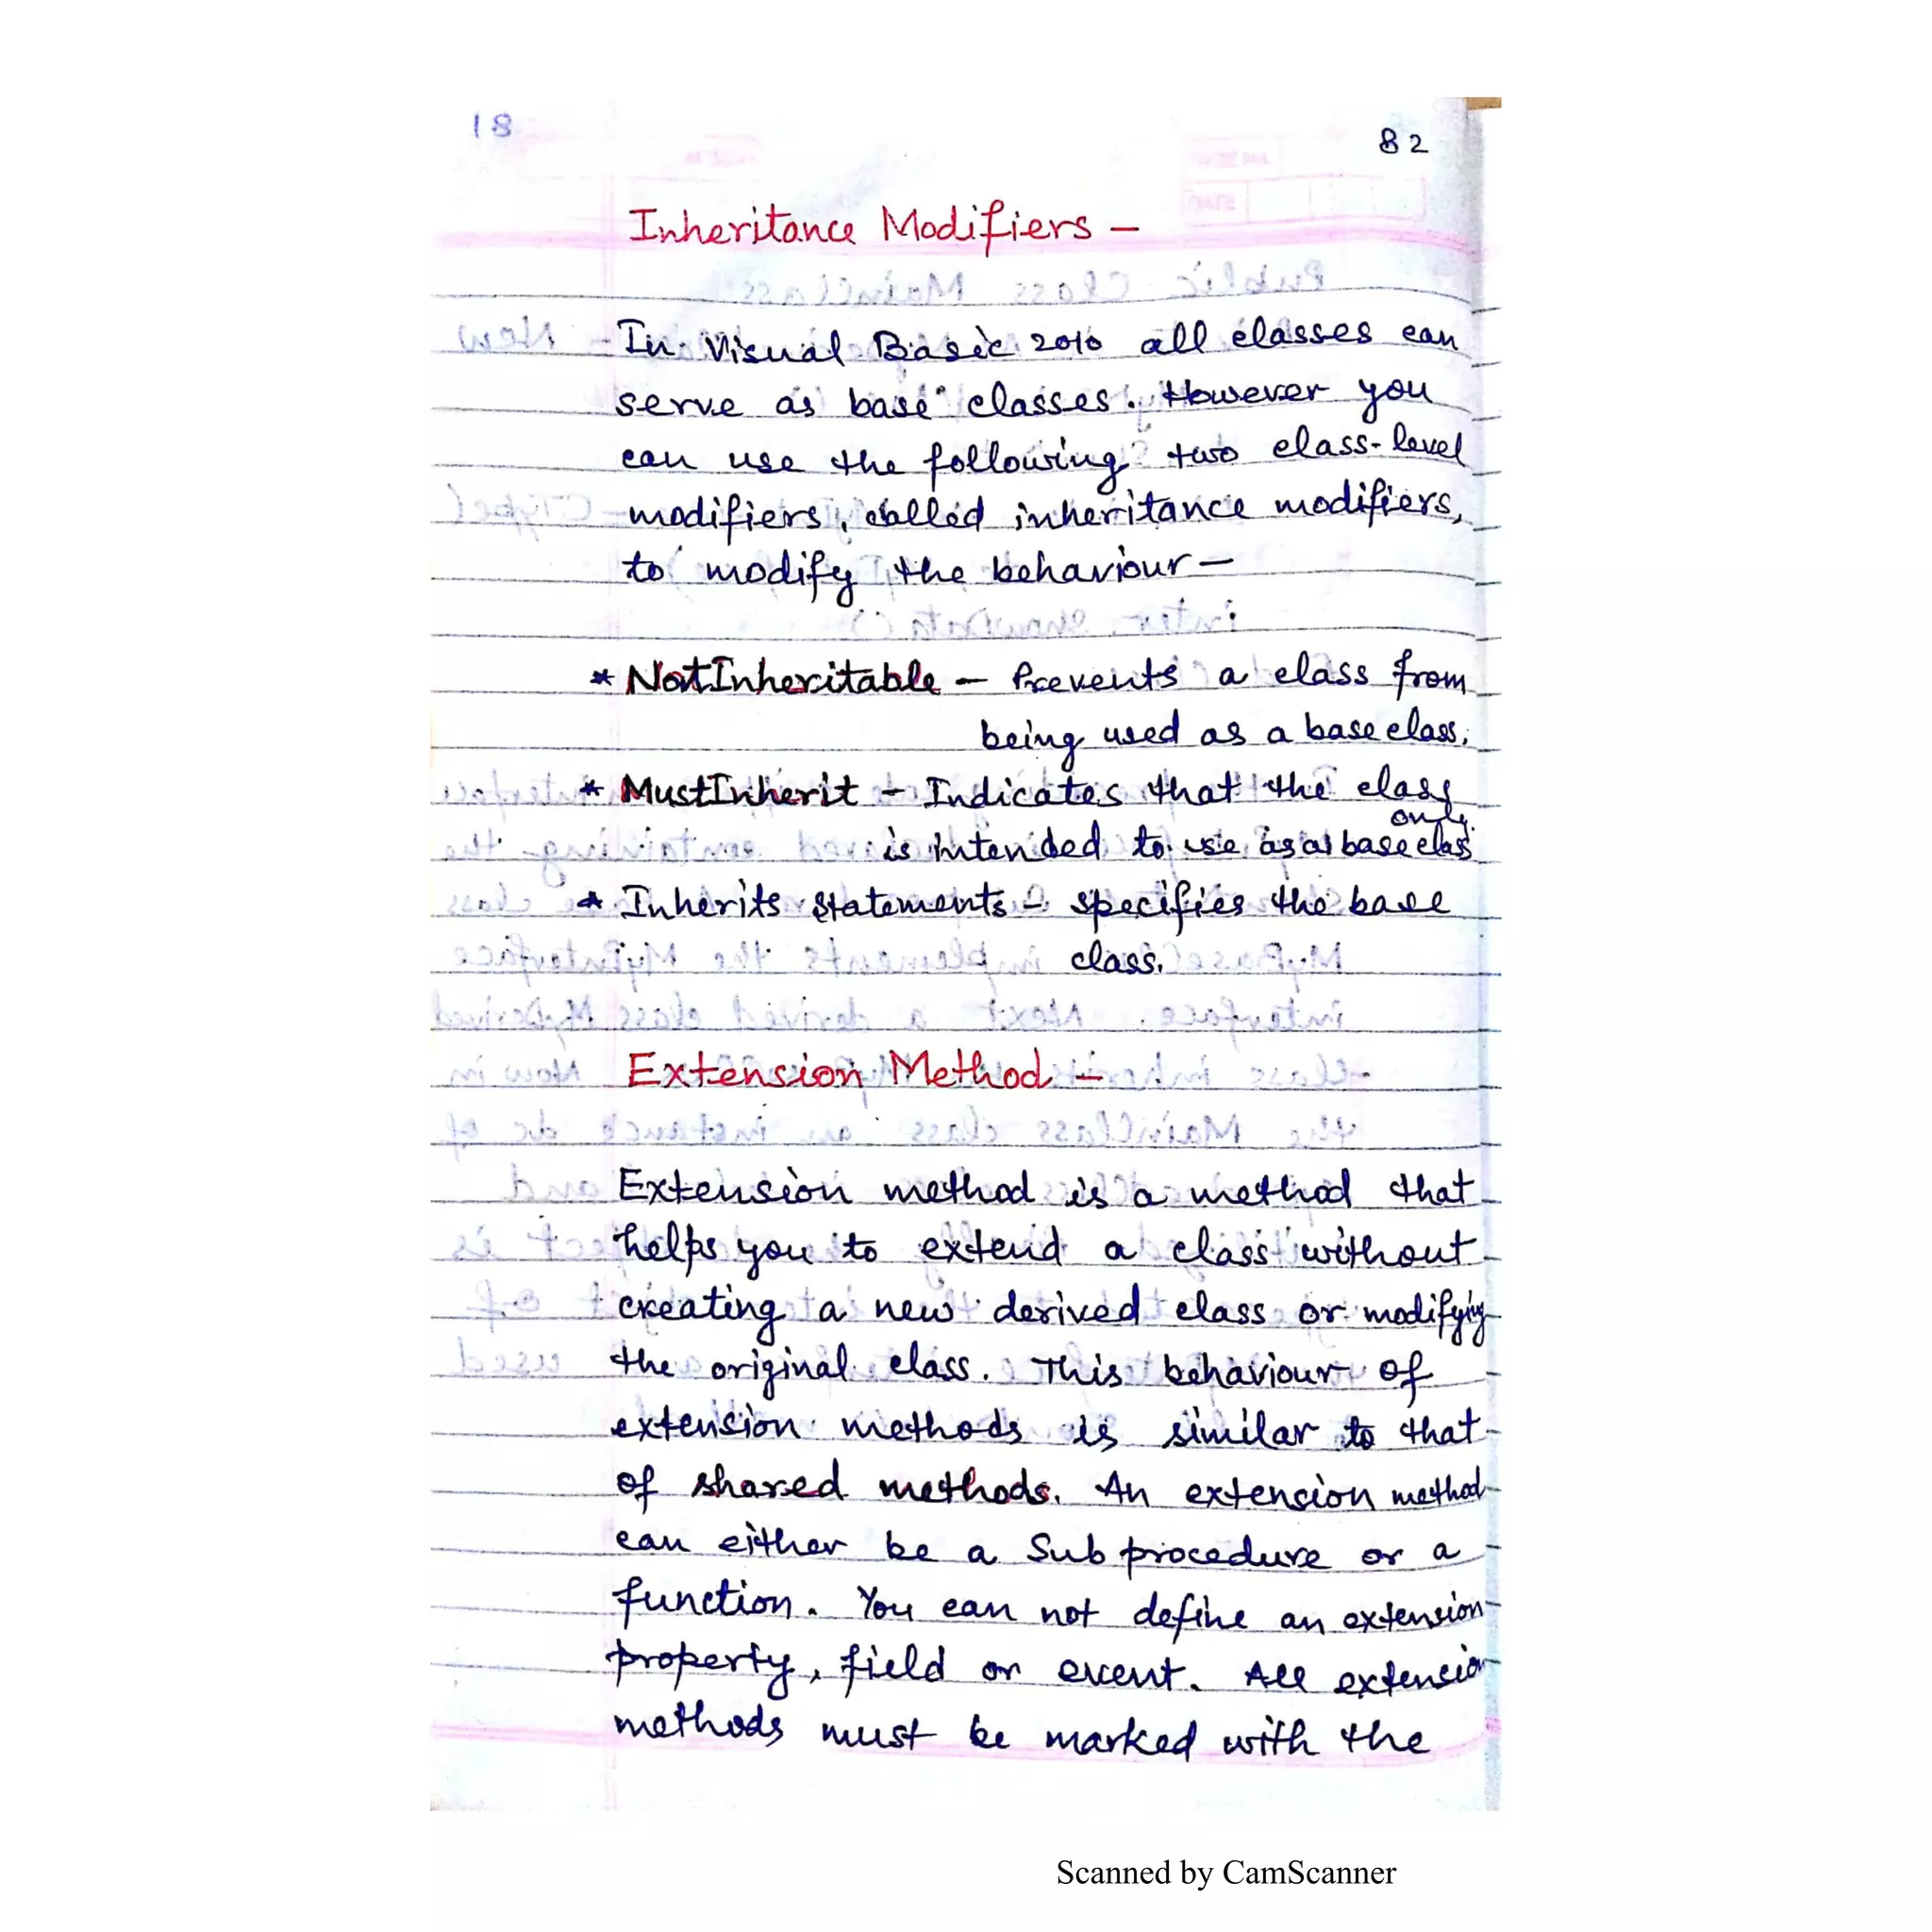 82
Inheritance Modifiers –
In Visual Basic 2010 all classes can
serve as base classes. However you
can use the following two class-level
modifiers, called inheritance modifiers,
to modify the behaviour –
* NotInheritable – Prevents a class from
being used as a base class.
* MustInherit – Indicates that the class
only
is intended to use as a base class
* Inherits statements – specifies the base
class.
Extension Method –
Extension method is a method that
helps you to extend a class without
creating a new derived class or modifying
the original class. This behaviour of
extension methods is similar to that
of shared methods. An extension method
can either be a Sub procedure or a
function. You can not define an extension
property, field or event. All extension
methods must be marked with the
Scanned by CamScanner